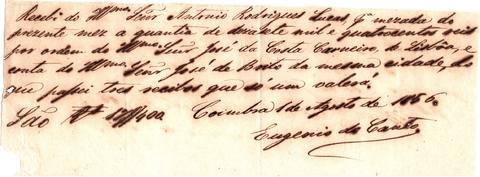 Recebi do Illmo Sñor Antonio Rodrigues Lucas, pa mezada do
prezente mez a quantia de dezasete mil e quatrocentos reis
por ordem do Illmo Sñor José da Costa Carneiro, de Lisboa, e
conta do Illmo Sñor José de Brito da mesma cidade, do
que passei tres recibos que só um valerá.
São Rs 17//400 Coimbra 1 de Agosto de 1856.
Eugenio do Canto